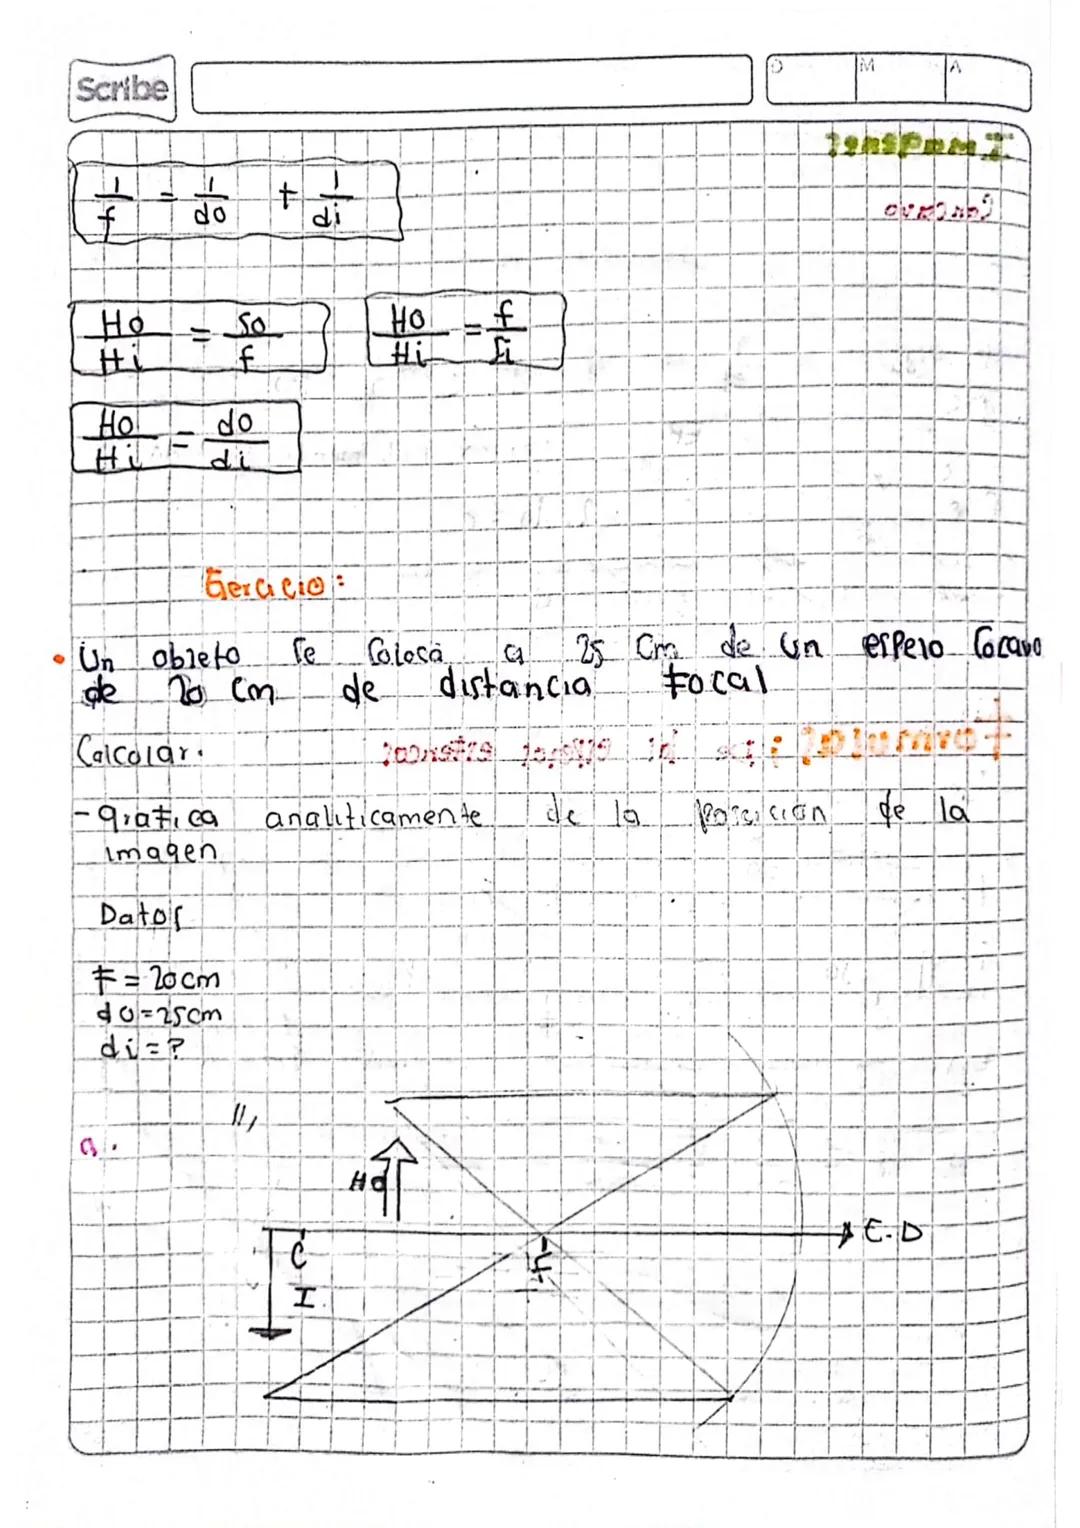 Scribe
D M A
1/f = 1/do + 1/di
Ho/Hi = So/f
Ho/Hi = f/Si
Ho/Hi = do/di
Ejercicio:
• Un objeto se coloca a 25 cm de un espejo cocavo
de 20 cm de distancia focal
Calcolar.
- grafica analiticamente de la posición de la
imagen
Datos
F = 20cm
do=25cm
di=?
a.
Ho
C
I
f
E.D